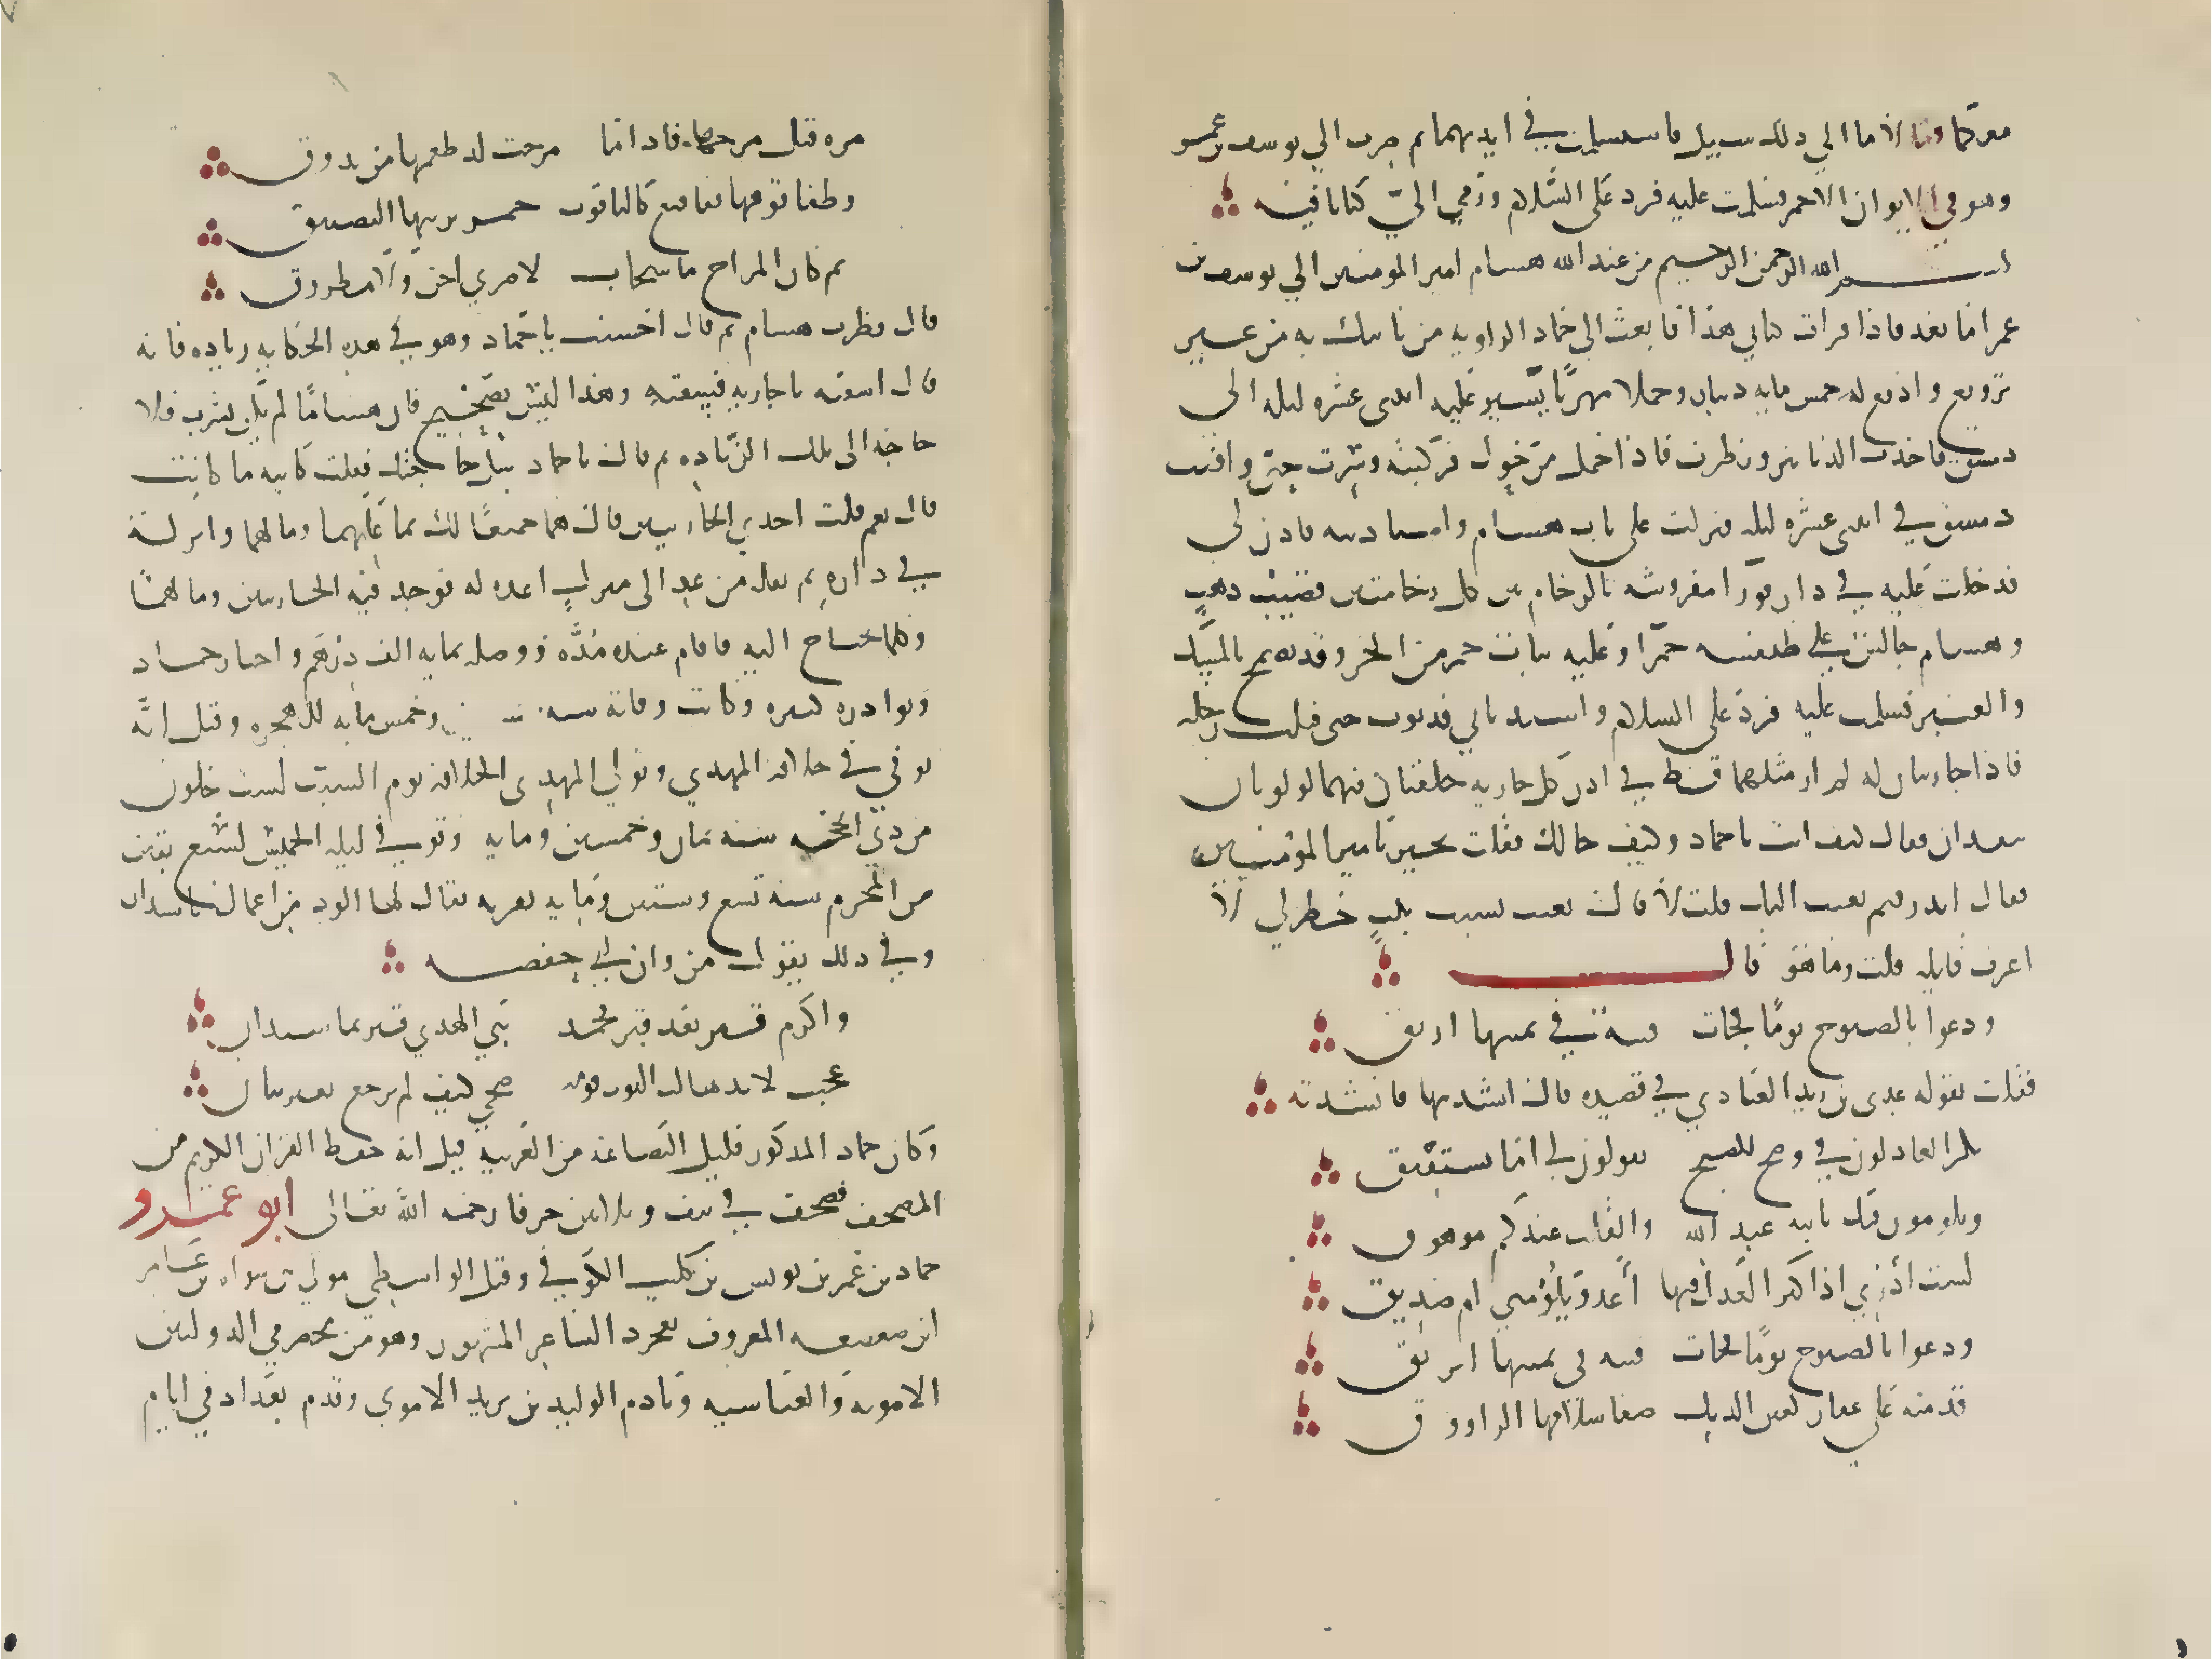 معكما وقالا ما الي ذلك سبيل فاستسلمت في ايديهما ثم صرت الي يوسف بن عمر
وهو في الايوان الاحمر فسلمت عليه فرد علي السلام ورمي الي كتابا فيه
بسم الله الرحمن الرحيم من عند الله هشام امير المومنين الي يوسف بن
عمر اما بعد فاذا قرات كتابي هذا فابعث الي حماد الراويه من ياتيك به من غير
ترويع وادفع له خمس مايه دينار وجملا مهريا يسير عليه اثني عشره ليله الي
دمشق فاخذت الدنانير ونظرت فاذا جمل مرحول فركبته وسرت حتي وافيت
دمشق في اثني عشره ليله فنزلت علي باب هشام واستاذنته فاذن لي
فدخلت عليه في دار قورا مفروشه بالرخام بين كل رخامتين قضيب ذهب
وهشام جالس علي طنفسه حمرا وعليه ثياب حمر من الخز وقد تضمخ بالمسك
والعنبر فسلمت عليه فرد علي السلام واستدناني فدنوت حتي قبلت رجله
فاذا جاريتان له لم ار مثلهما قط في اذن كل جاريه حلقتان فيهما لولوتان
تتقدان فقال كيف انت يا حماد وكيف حالك فقلت بخير يا امير المؤمنين
فقال اتدري فيم بعثت اليك قلت لا قال بعثت بسبب بيت خطر لي لا
اعرف قايله قلت وما هو قال
ودعوا بالصبوح يوما فجات قينة في يمينها ابريق
فقلت يقوله عدي بن زيد العبادي في قصيده قال انشدنيها فانشدته
بكر العاذلون في وضح الصبح يقولون لي اما تستفيق
ويلومون فيك يا ابنه عبد الله والقلب عندكم موهوق
لست ادري اذ اكثر العذل فيها أعدو يلومني ام صديق
ودعوا بالصبوح يوما فجات قينه في يمينها ابريق
قدمته علي عقار كعين الديك صفا سلافها الراووق
مره قبل مرجها فاذا ما مرجت لذ طعمها من يذوق
وطفا فوقها فقاقيع كالياقوت حمر يزينها التصفيق
ثم كان المزاج ما سحاب لا صري اجن ولا مطروق
قال فطرب هشام ثم قال احسنت يا حماد وهو في هذه الحكايه زياده فانه
قال اسقيه يا جاريه فسقته وهذا ليس بصحيح فان هشاما لم يكن يشرب فلا
حاجه الي تلك الزياده ثم قال يا حماد سل حاجتك فقلت كاينه ما كانت
قال نعم قلت احدي الجاريتين قال هما جميعا لك بما عليهما وما لهما وانزله
في داره ثم نقله من غد الي منزل اعده له فوجد فيه الجاريتين وما لهما
وكلما يحتاج اليه فاقام عنده مدة ووصله بمايه الف درهم واخبار حماد
ونوادره كثيره وكانت وفاته سنه وخمس ومايه للهجره وقيل انه
توفي في خلافه المهدي وتولي المهدي الخلافه يوم السبت لست خلون
من ذي الحجه سنه ثمان وخمسين ومايه وتوفي ليله الخميس لسبع بقين
من المحرم سنه تسع وستين ومايه بقريه يقال لها الود من اعمال ماسبذان
وفي ذلك يقول مروان بن ابي حفصه
واكرم قبر بعد قبر محمد نبي الهدي قبر بماسبذان
عجبت لايد هالت الترب فوقه ضحي كيف لم ترجع بغير بنان
وكان حماد المذكور قليل البضاعه من العربيه قيل انه حفظ القران الكريم من
المصحف فصحف في نيف وثلاثين حرفا رحمه الله تعالي ابو عمرو
حماد بن عمر بن يونس بن كليب الكوفي وقيل الواسطي مولي بني سواه بن عامر
ابن صعصعه المعروف بعجرد الشاعر المشهور وهو من مخضرمي الدولتين
الامويه والعباسيه ونادم الوليد بن يزيد الاموي وقدم بغداد في ايام